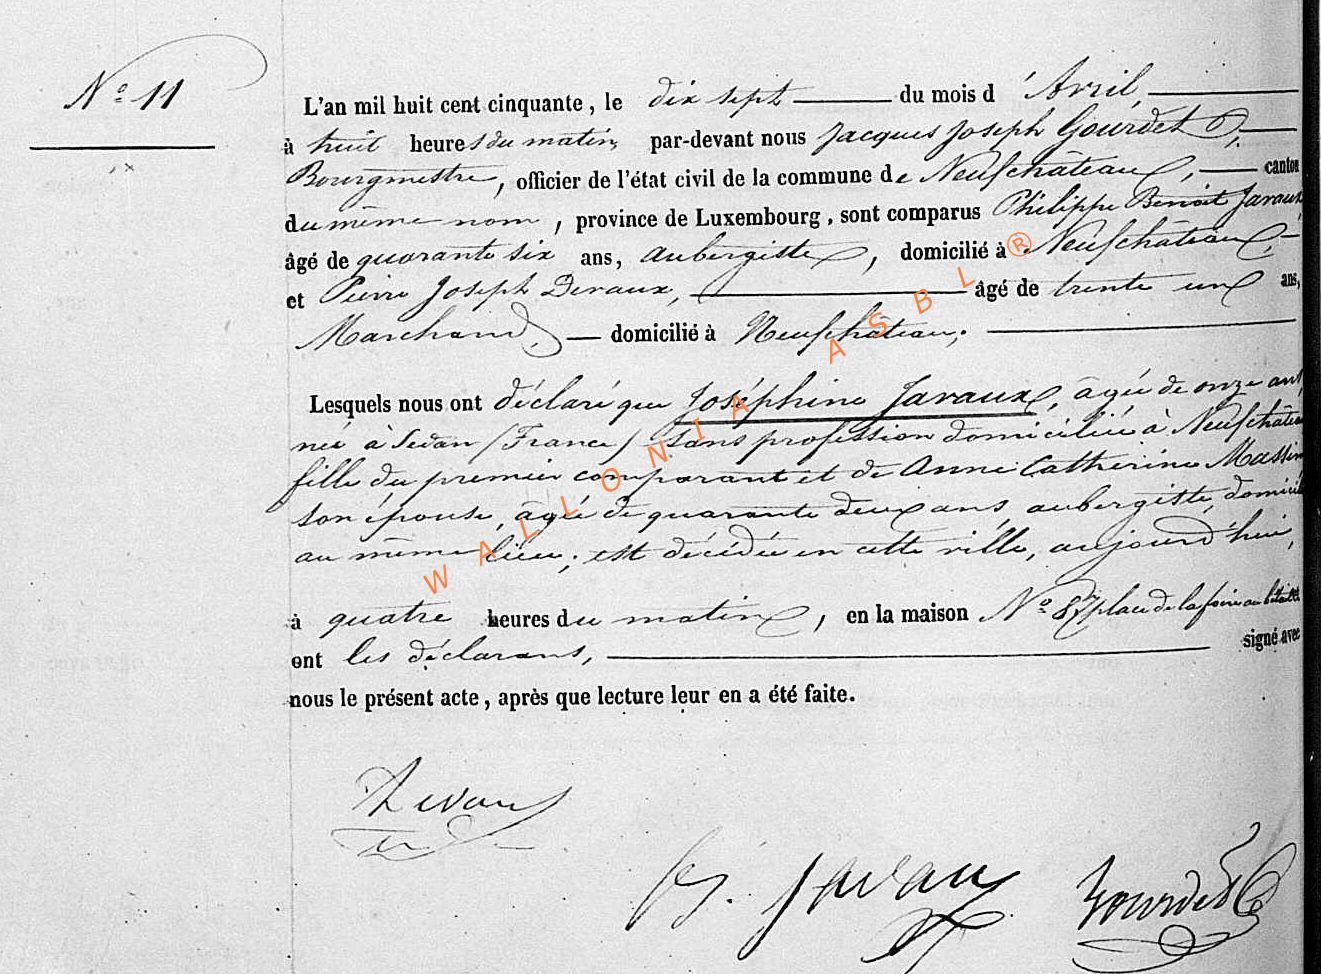 N° 11
L'an mil huit cent cinquante, le dix sept du mois d'Avril,
à huit heures du matin, par-devant nous Jacques Joseph Gourdet,
Bourgmestre, officier de l'état civil de la commune de Neufchâteau, canton
du même nom, province de Luxembourg, sont comparus Philippe Benoit Javaux,
âgé de quarante six ans, aubergiste, domicilié à Neufchâteau,
et Pierre Joseph Devaux, âgé de trente un ans,
Marchand, domicilié à Neufchâteau;
Lesquels nous ont déclaré que Joséphine Javaux, agée de onze ans,
née à Sedan (France) sans profession domiciliée à Neufchâteau
fille du premier comparant et de Anne Catherine Massin
son épouse, agée de quarante deux ans aubergiste, domicil
au même lieu; est décédée en cette ville, aujourd'hui,
à quatre heures du matin, en la maison N° 87 place de la foire au bétail et
ont les déclarans, signé avec
nous le présent acte, après que lecture leur en a été faite.
Devaux
Javaux
Gourdet
WALLONIA ASBL ®